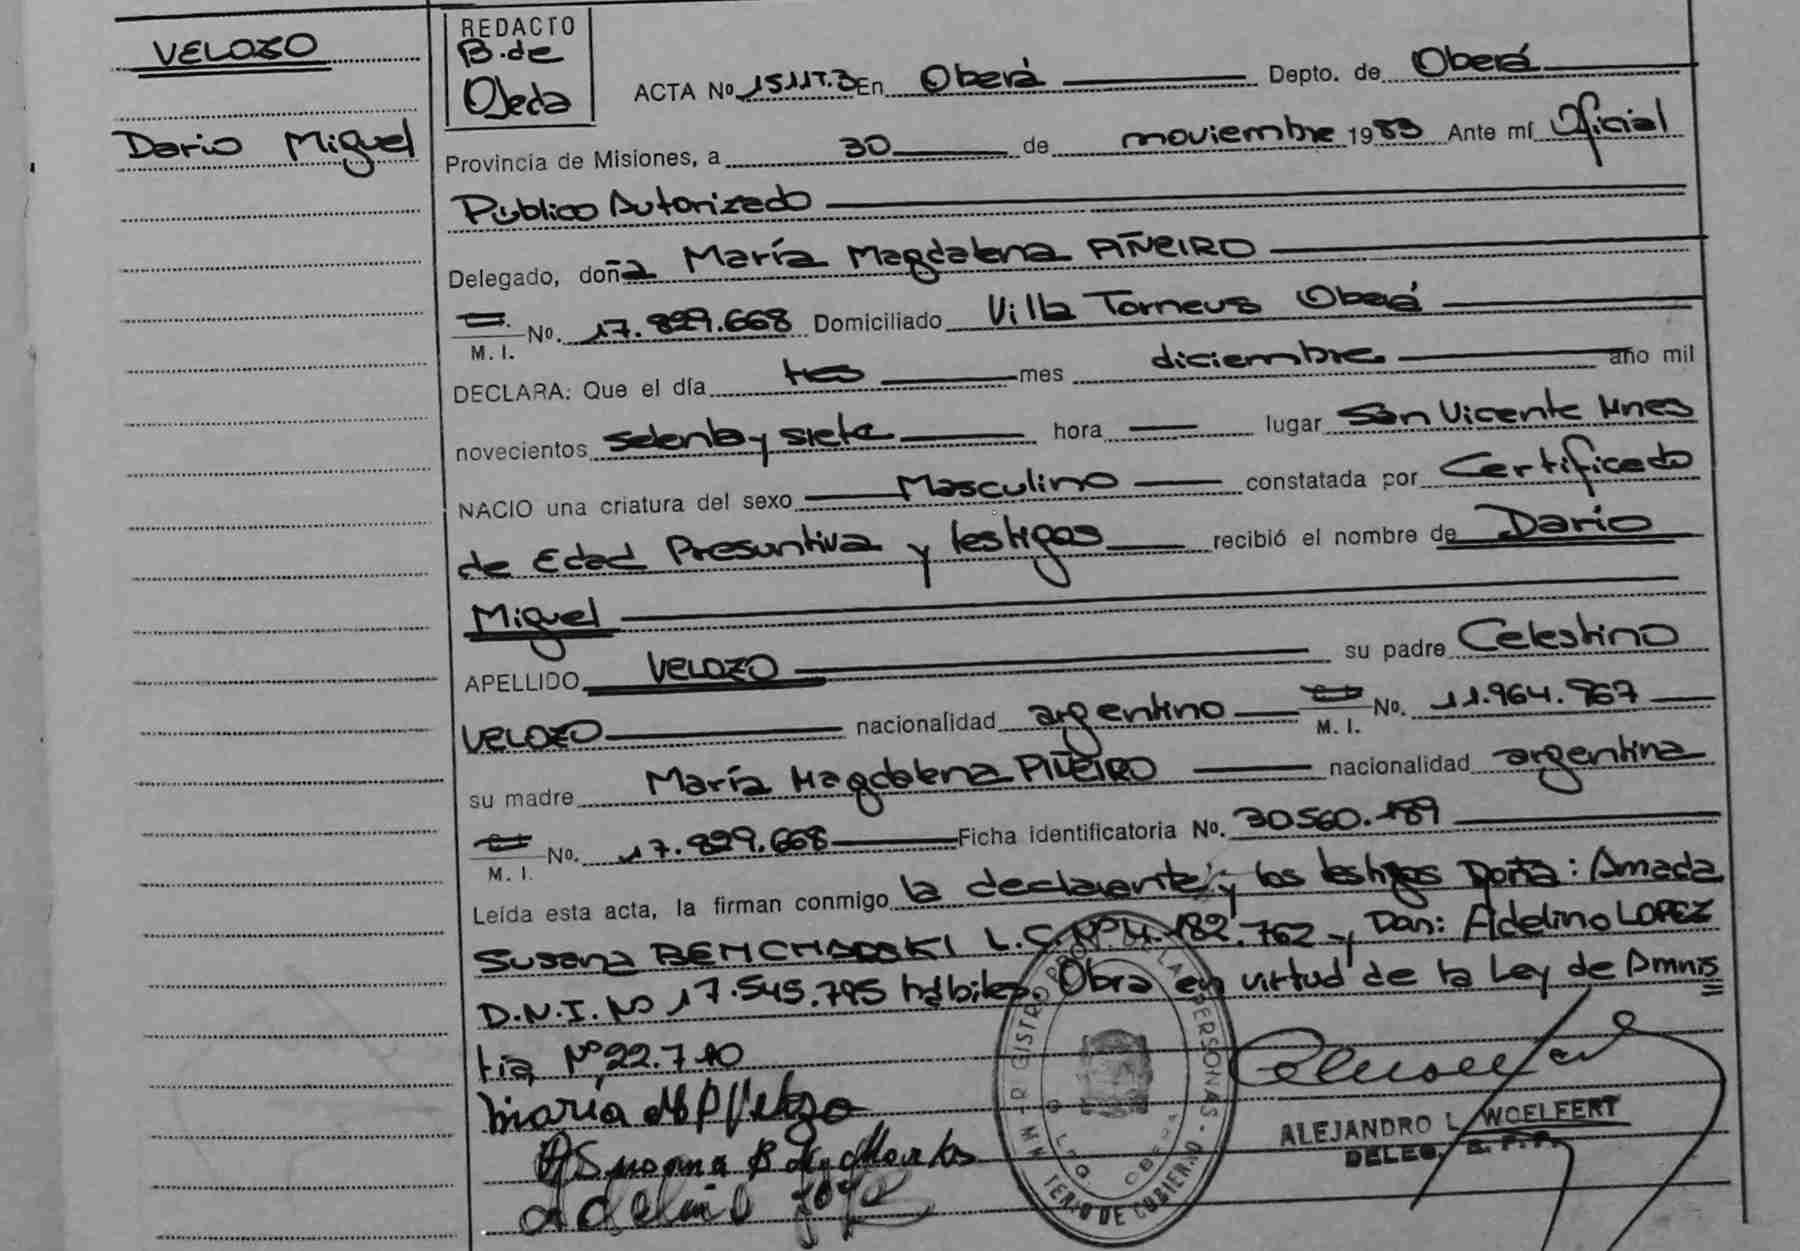 VELOZO
Dario Miguel
REDACTO
B. de
Ojeda
ACTA No 1511T.3 En Oberá Depto. de Oberá
Provincia de Misiones, a 30 de noviembre 1983 Ante mí Oficial
Público Autorizado
Delegado, doña María Magdalena PIÑEIRO
M. I. No. 17.899.668 Domiciliado Villa Torneus Oberá
DECLARA: Que el día tres mes diciembre año mil
novecientos setenta y siete hora lugar San Vicente Mnes
NACIO una criatura del sexo Masculino constatada por Certificado
de Edad Presuntiva y testigos recibió el nombre de Dario
Miguel
APELLIDO VELOZO su padre Celestino
VELOZO nacionalidad argentino M. I. No. 11.964.967
su madre María Magdalena PIÑEIRO nacionalidad argentina
M. I. No. 17.899.668 Ficha identificatoria No. 30560.189
Leída esta acta, la firman conmigo la declarante y los testigos Doña: Amada
Susana L.C. Nº 4.182.762 y Don: Adelino LOPEZ
D.N.I. Nº 17.545.795 hábiles. Obra en virtud de la Ley de Amnis
tia Nº 22.710
Maria
Susana
Adelino
REGISTRO PROV. DE LAS PERSONAS
MINISTERIO DE GOBIERNO
OBERA
ALEJANDRO L. WOELFERT
DELEG. R.P.P.